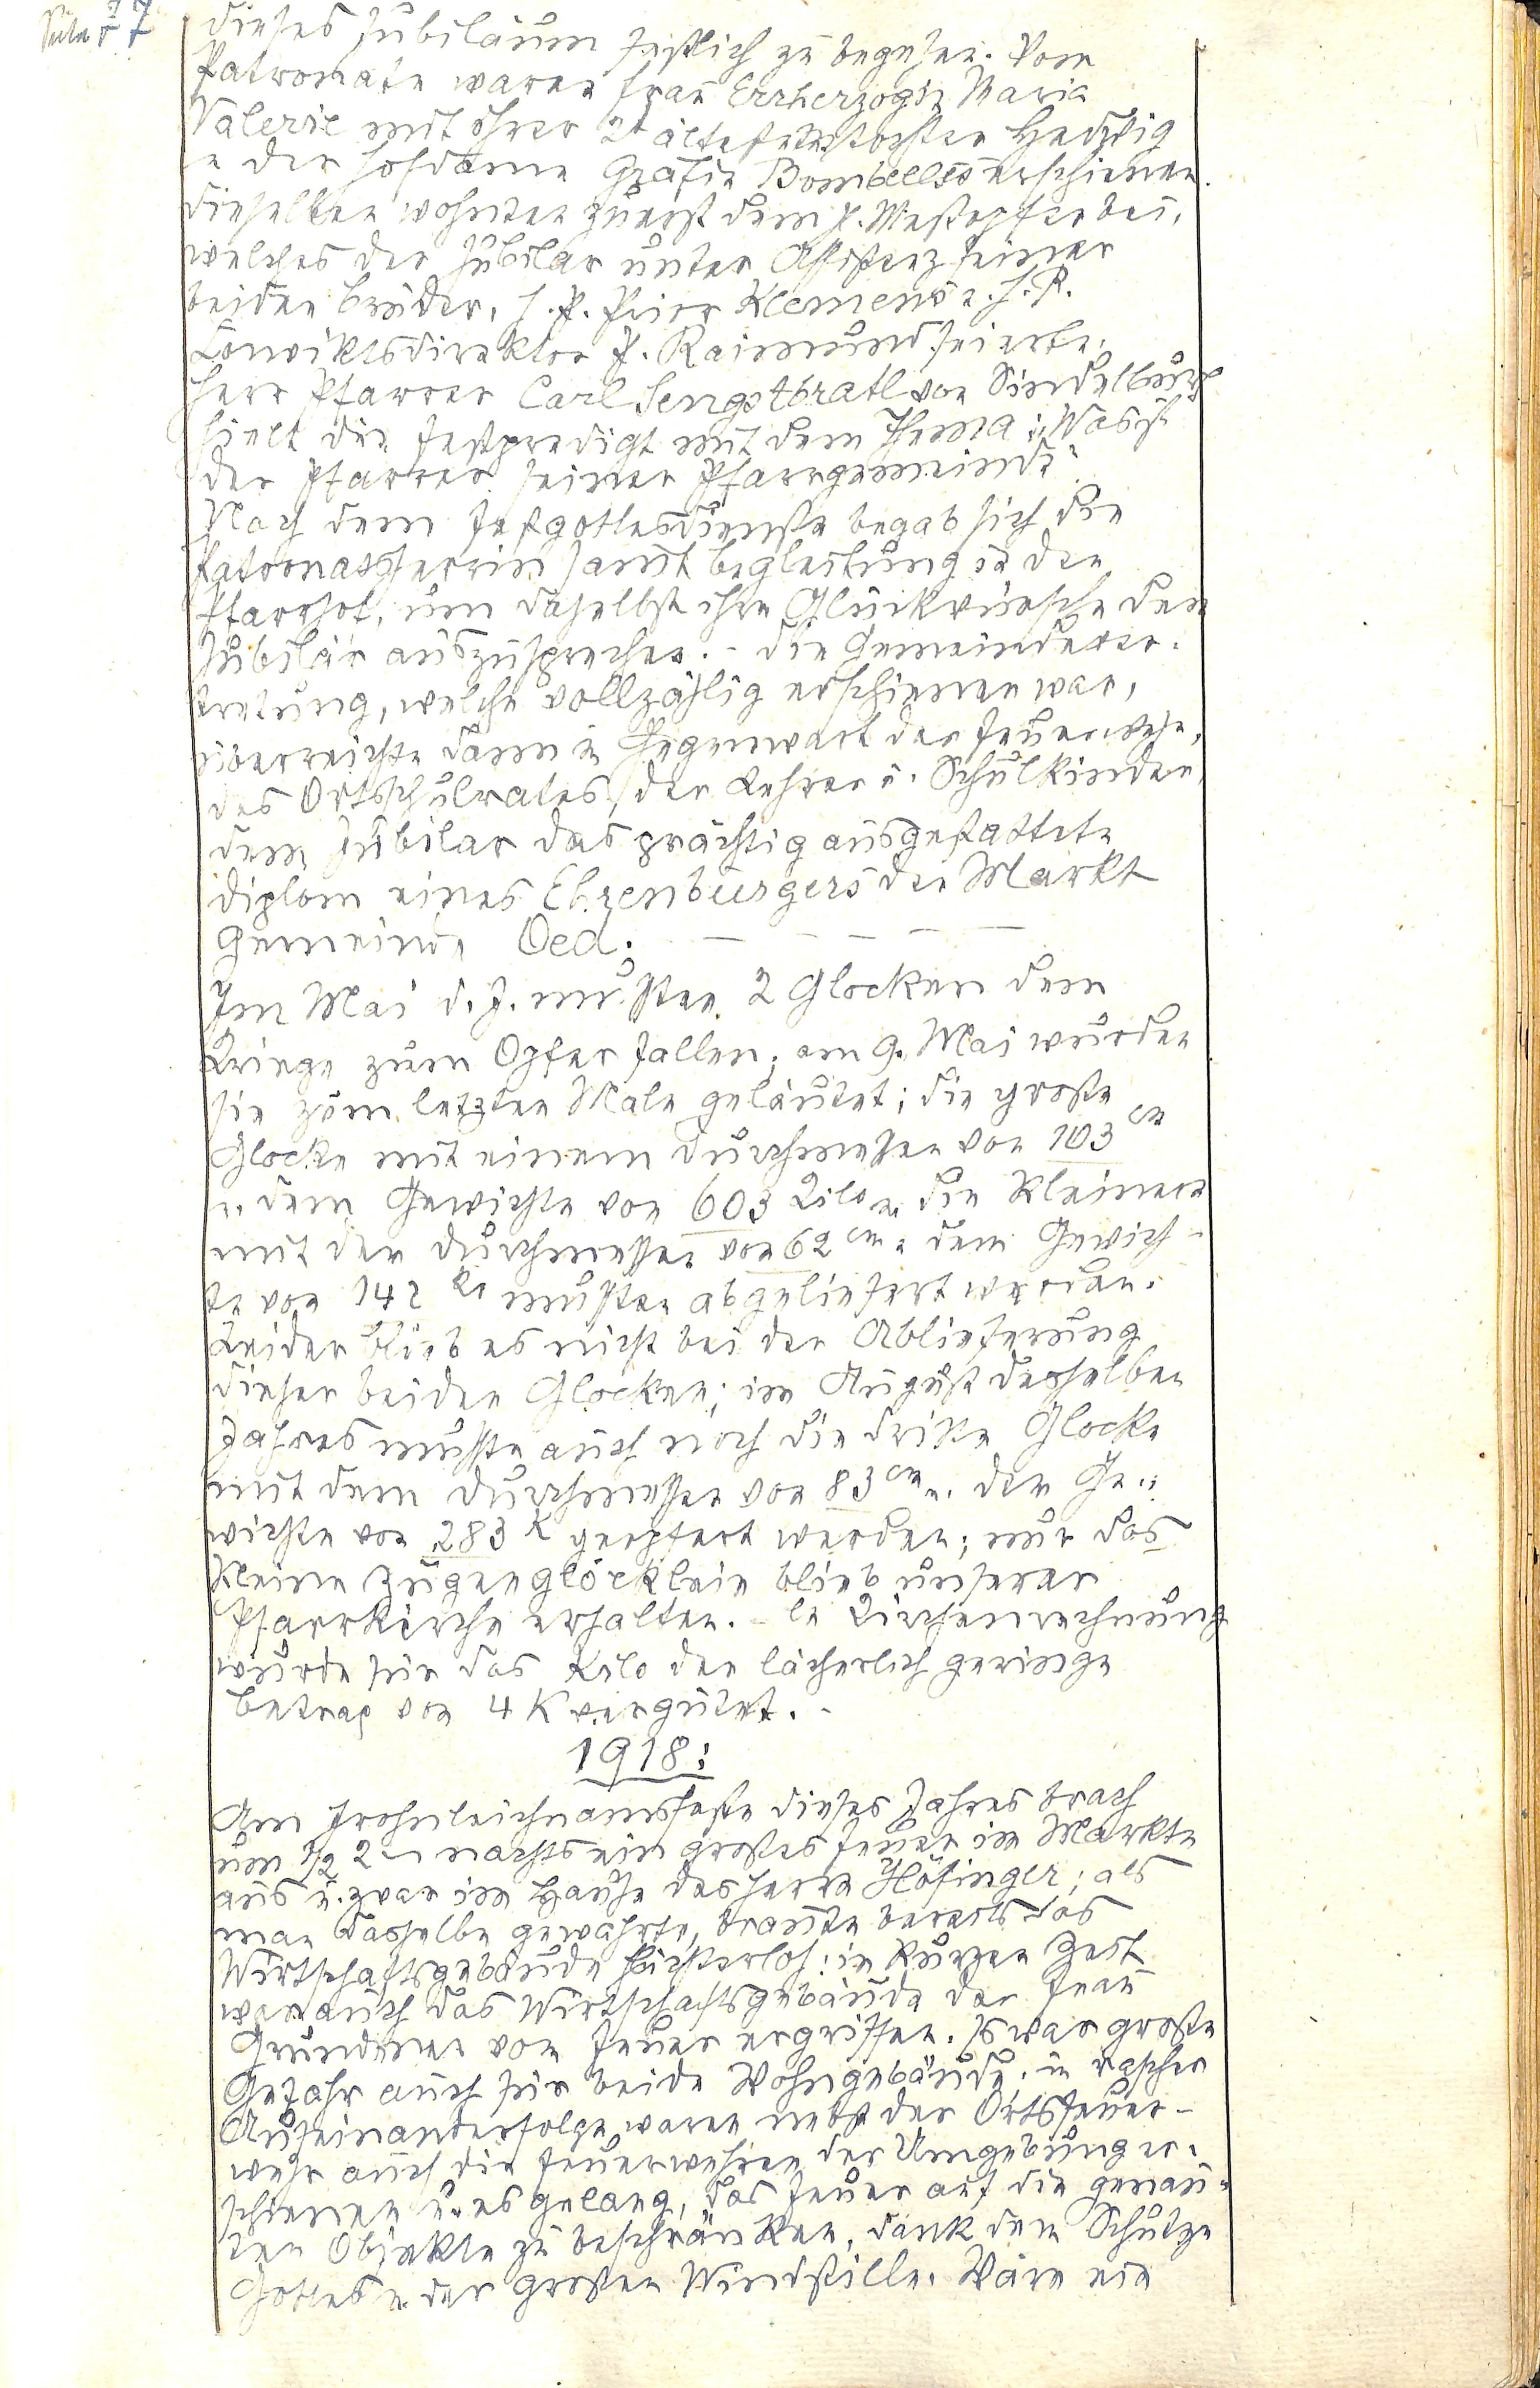 Seite 7
dieses Jubiläum festlich zu begehen. Vom
Patronate waren Frau Erzherzogin Maria
Valerie mit ihrer 2t ältesten Tochter Hedwig
u. der Hofdame Gräfin Bombelles erschienen.
Dieselben wohnten zuerst dem h. Meßopfer bei,
welches der Jubilar unter Assistenz seiner
beiden Brüder, H. P. Prior Klemens u. H. R.
Konviktsdirektor P. Raimund feierte.
Herr Pfarrer Carl Sengstbratl von Sindelburg
hielt die Festpredigt mit dem Thema: „Was ist
der Pfarrer seiner Pfarrgemeinde“
Nach dem Festgottesdienste begab sich die
Patronatsherrin samt Begleitung in den
Pfarrhof, um daselbst ihre Glückwünsche dem
Jubilär auszusprechen. - Die Gemeindever-
tretung, welche vollzählig erschienen war,
überreichte dann in Gegenwart der Feuerwehr,
des Ortsschulrates, der Lehrer u. Schulkinder,
dem Jubilar das prächtig ausgestattete
Diplom eines Ehrenbürgers der Markt
Gemeinde Oed. — — — — —
Im Mai d. J. mußten 2 Glocken dem
Kriege zum Opfer fallen; am 9. Mai wurden
sie zum letzten Male geläutet; die große
Glocke mit einem Durchmesser von 103 cm
u. dem Gewichte von 603 Kilo u. die kleinere
mit den Durchmesser von 62 cm u. dem Gewich-
te von 142 Ko mußten abgeliefert werden.
Leider blieb es nicht bei der Ablieferung
dieser beiden Glocken; im August desselben
Jahres mußte auch noch die dritte Glocke
mit dem Durchmesser von 83 cm u. den Ge-
wichte von 283 K geopfert werden; nur das
kleine Zügenglöcklein blieb unserer
Pfarrkirche erhalten. - Kirchenrechnung
wurde für das Kilo der lächerlich geringe
Betrag von 4 K vergütet. -
1918:
Am Frohnleichnamsfeste dieses Jahres brach
um 1/2 2 h nachts ein großes Feuer im Markte
aus u. zwar im Hause des Herrn Höfinger; als
man dasselbe gewahrte, brannte bereits das
Wirtschaftsgebäude lichterloh; in kurzer Zeit
war auch das Wirtschaftsgebäude der Frau
Grundner vom Feuer ergriffen. Es war große
Gefahr auch für beide Wohngebäude; in rascher
Aufeinanderfolge waren nebst der Ortsfeuer-
wehr auch die Feuerwehren der Umgebung er-
schienen u. es gelang, das Feuer auf die genan-
ten Objekte zu beschränken, dank dem Schutze
Gottes u. der großen Windstille. Wäre ein